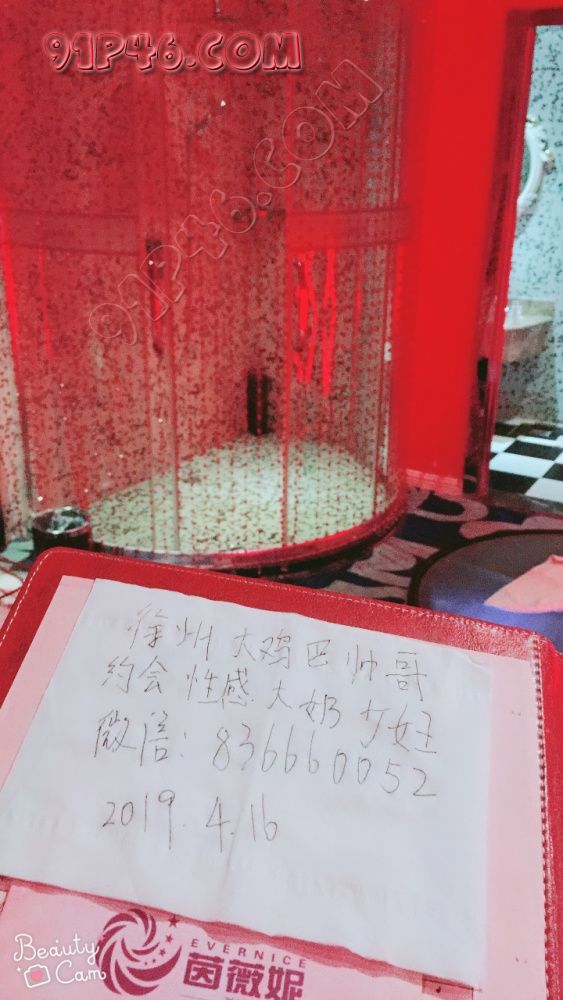 91P46.COM
91P46.COM
徐州大鸡巴帅哥
约会性感大奶少妇
微信:836660052
2019.4.16
Beauty Cam
EVERNICE
茵薇妮